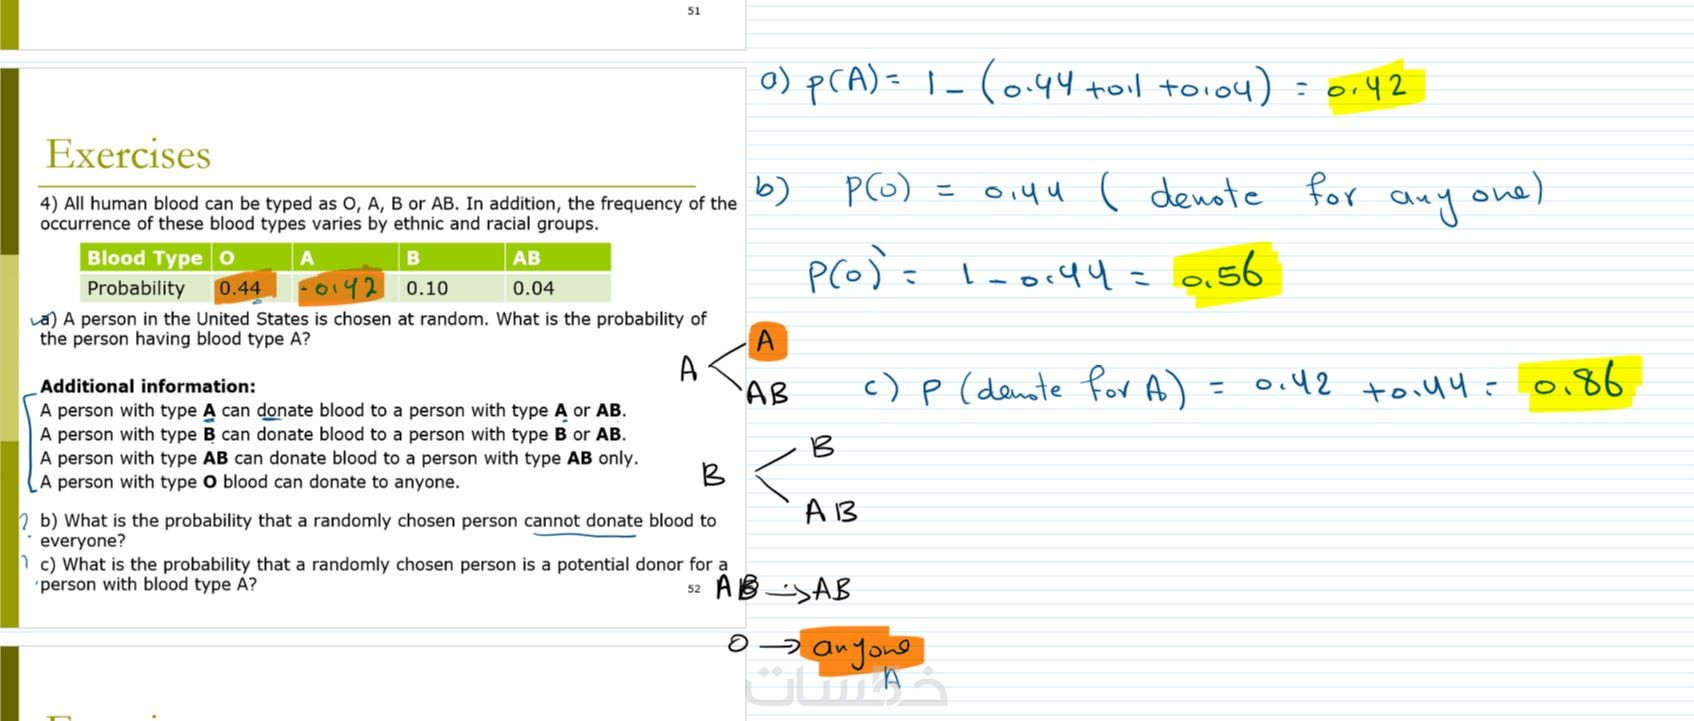 51
Exercises
4) All human blood can be typed as O, A, B or AB. In addition, the frequency of the
occurrence of these blood types varies by ethnic and racial groups.
Blood Type O A B AB
Probability 0.44 0.42 0.10 0.04
a) A person in the United States is chosen at random. What is the probability of
the person having blood type A?
Additional information:
A person with type A can donate blood to a person with type A or AB.
A person with type B can donate blood to a person with type B or AB.
A person with type AB can donate blood to a person with type AB only.
A person with type O blood can donate to anyone.
? b) What is the probability that a randomly chosen person cannot donate blood to
everyone?
? c) What is the probability that a randomly chosen person is a potential donor for a
person with blood type A?
52
a) p(A) = 1 - (0.44 + 0.1 + 0.04) = 0.42
b) P(O) = 0.44 ( denote for any one)
P(O)` = 1 - 0.44 = 0.56
c) p (denote for A) = 0.42 + 0.44 = 0.86
A < A
AB
B < B
AB
AB → AB
O → anyone
A
خمسات